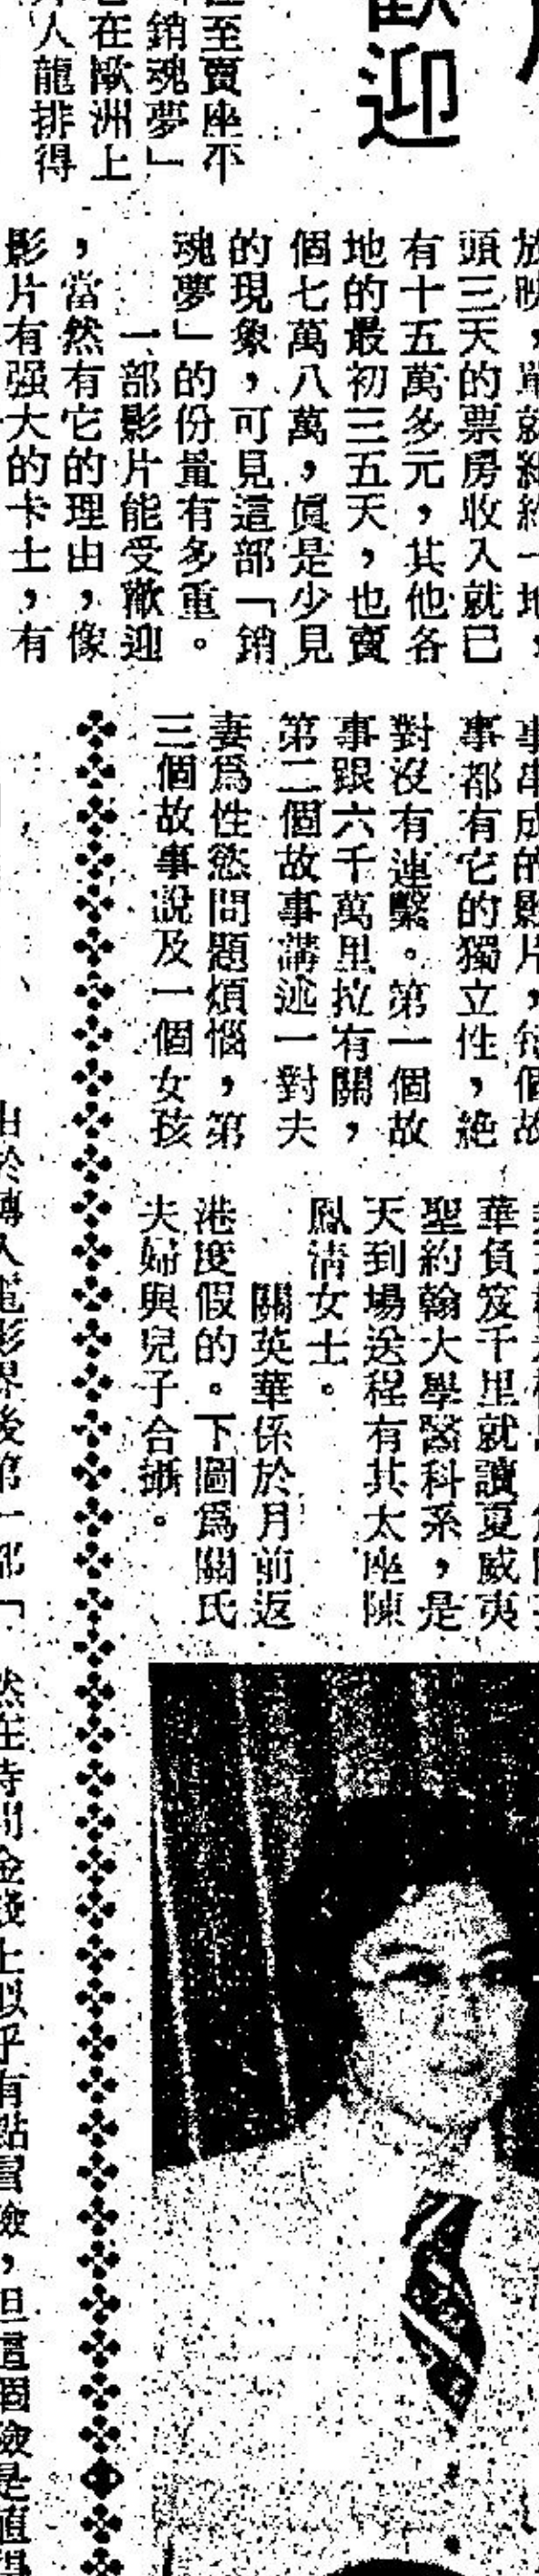 歡迎
至賣座不
銷魂夢」
在歐洲上
人龍排得
放映，單就紐約一地，
頭三天的票房收入就已
有十五萬多元，其他各
地的最初三五天，也賣
個七萬八萬，眞是少見
的現象，可見這部「銷
魂夢」的份量有多重。
一部影片能受歡迎
，當然有它的理由，像
影片有强大的卡士，有
事串成的影片，每個故
事都有它的獨立性，絕
對沒有連繫。第一個故
事跟六千萬里拉有關，
第二個故事講述一對夫
妻爲性慾問題煩惱，第
三個故事說及一個女孩
華負笈千里就讀夏威夷
聖約翰大學醫科系，是
天到場送程有其太座陳
鳳清女士。
關英華係於月前返
港度假的。下圖爲關氏
夫婦與兒子合攝。
由於轉入電影界後第一部「
然在時間金錢上似乎有點冒險，但這個險是值得